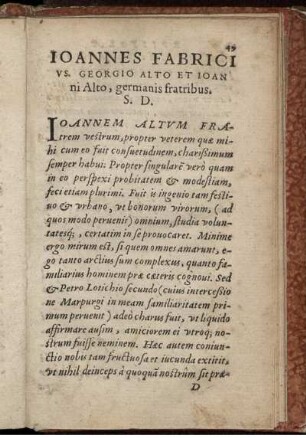 49
IOANNES FABRICI
VS. GEORGIO ALTO ET IOAN
ni Alto, germanis fratribus.
S. D.
IOANNEM ALTVM FRA-
trem vestrum, propter veterem quæ mi-
hi cum eo fuit consuetudinem, charissimum
semper habui: Propter singularē verò quam
in eo perspexi probitatem & modestiam,
feci etiam plurimi. Fuit is ingenio tam festi-
uo & vrbano, vt bonorum virorum, (ad
quos modo peruenit) omnium, studia volun-
tatesq́;, certatim in se prouocaret. Minime
ergo mirum est, si quem omnes amarunt, e-
go tanto arctius sum complexus, quanto fa-
miliarius hominem præ cæteris cognoui. Sed
& Petro Lotichio secundo (cuius intercessio
ne Marpurgi in meam familiaritatem pri-
mum peruenit) adeò charus fuit, vt liquido
affirmare ausim, amiciorem ei vtroq; no-
strum fuisse neminem. Hæc autem coniun-
ctio nobis tam fructuosa et iucunda extitit,
vt nihil deinceps à quoquā nostrûm sit præ-
D